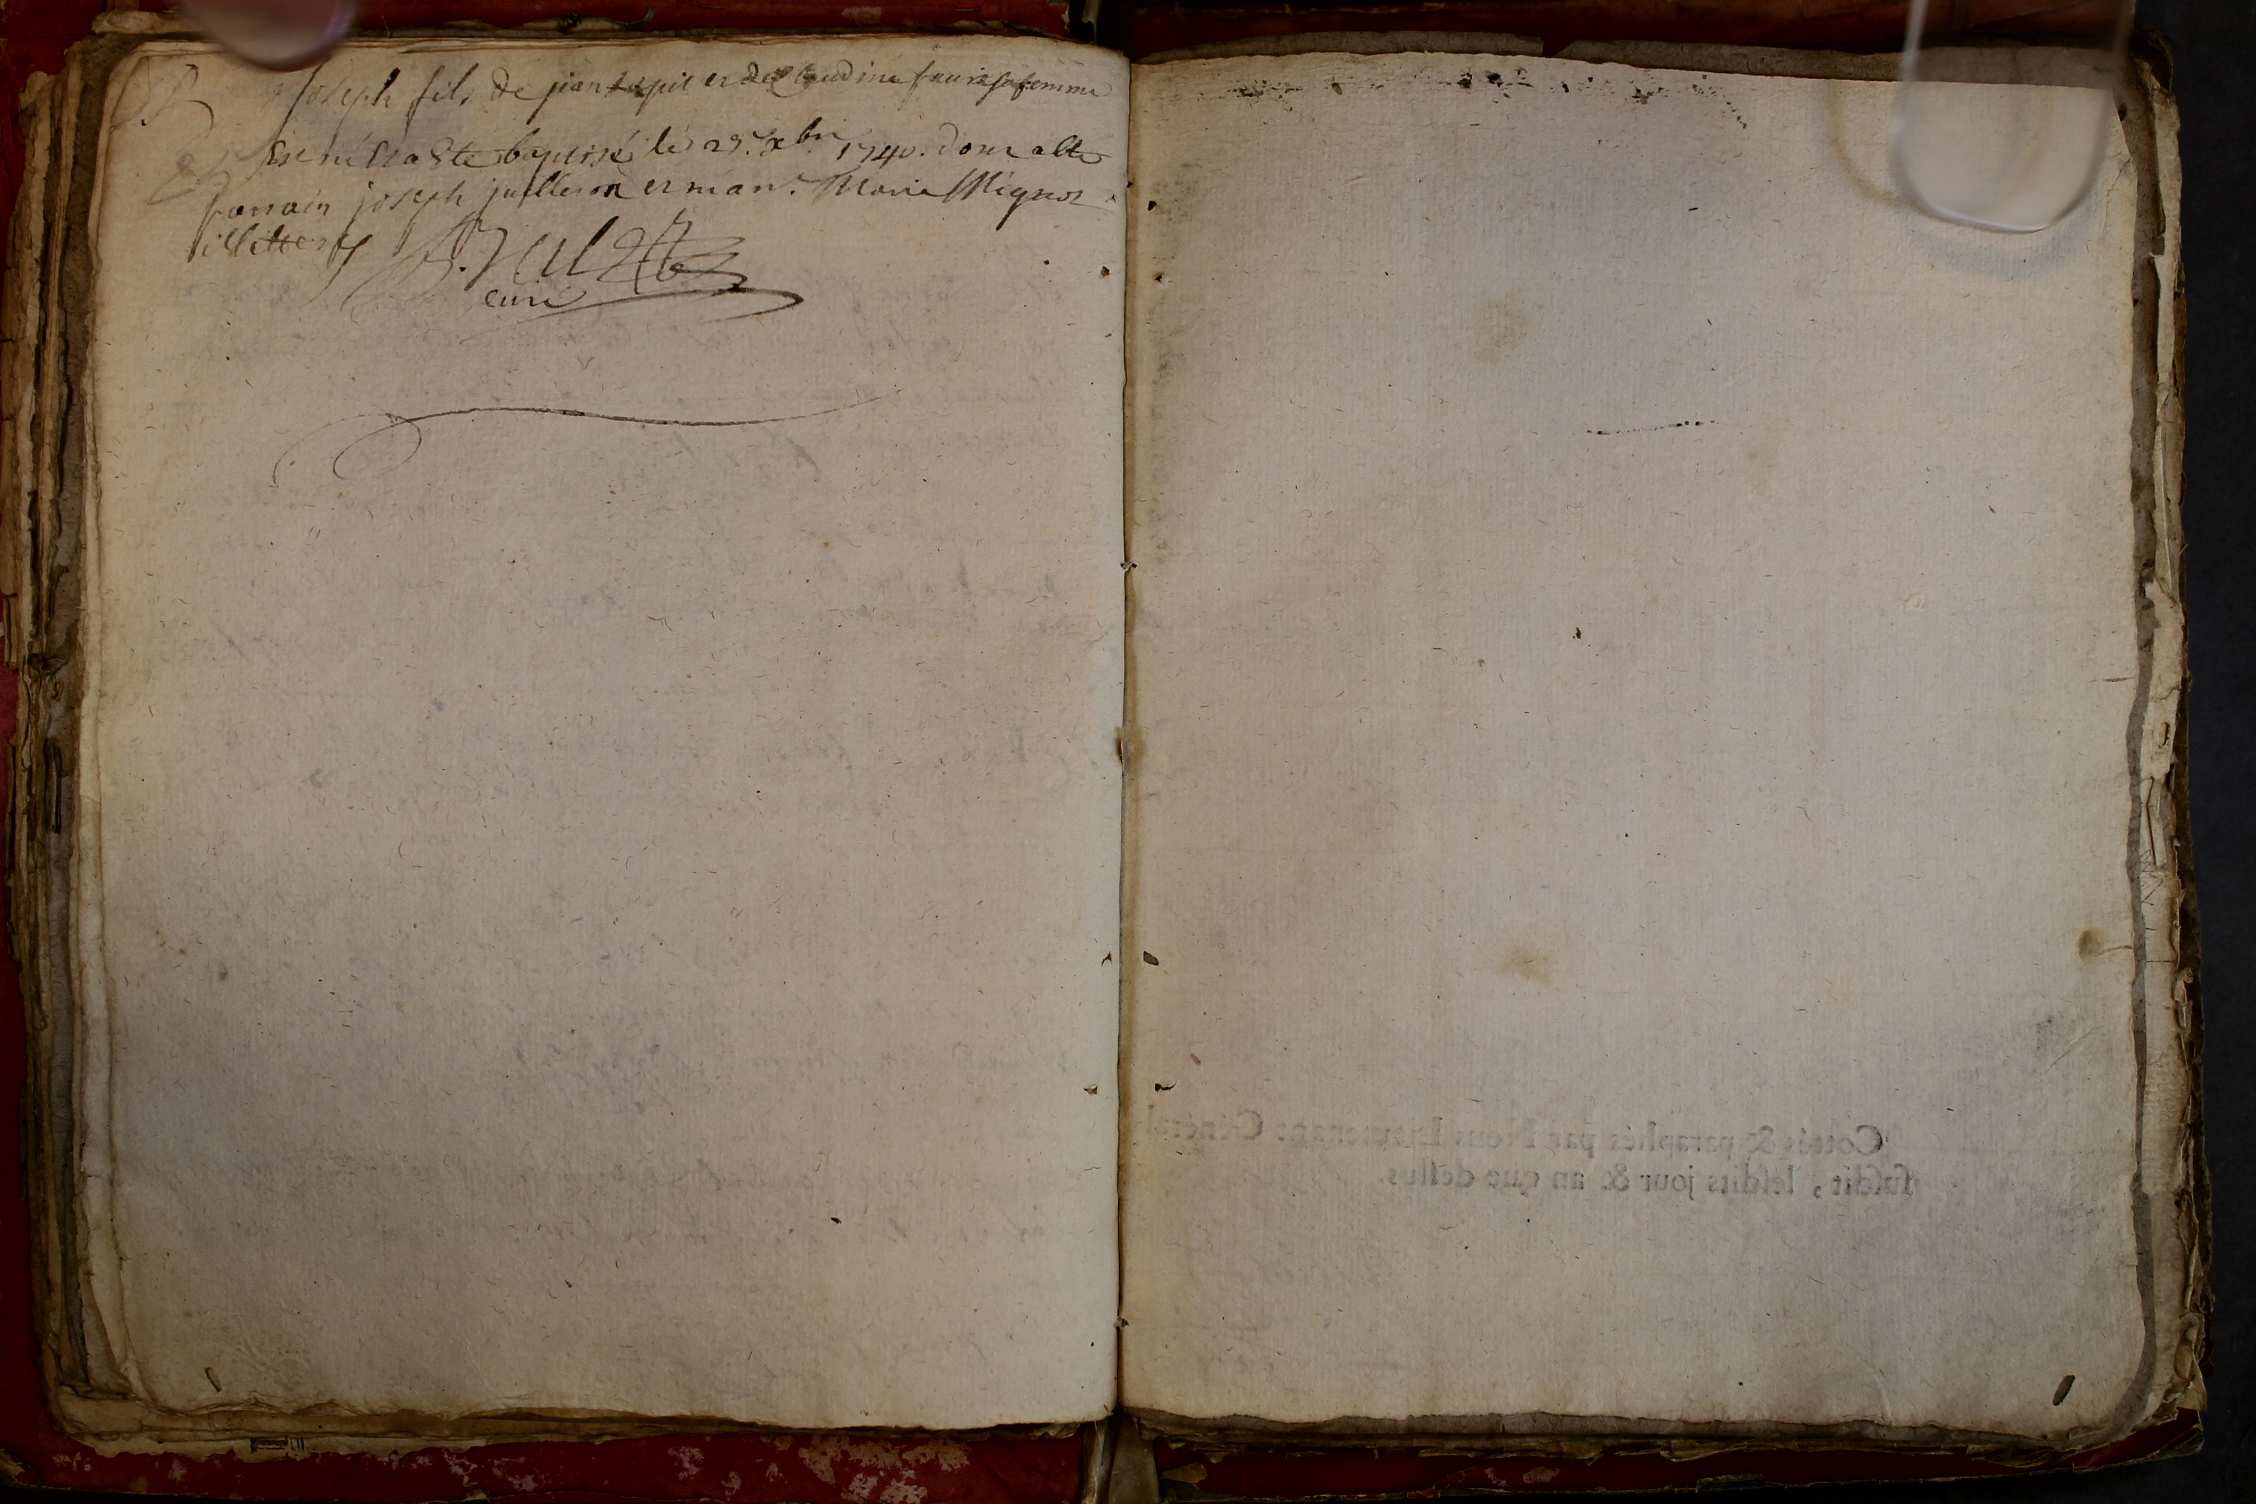 Joseph fils de et de Claudine faure sa femme
est né et a esté baptisé le 25. xbre 1740. dont a esté
parrain joseph et mar. Marie Mignot
illitterés
curé
Cotées & paraphés par Nous Lieutenant Général
susdit, lesdits jour & an que dessus.